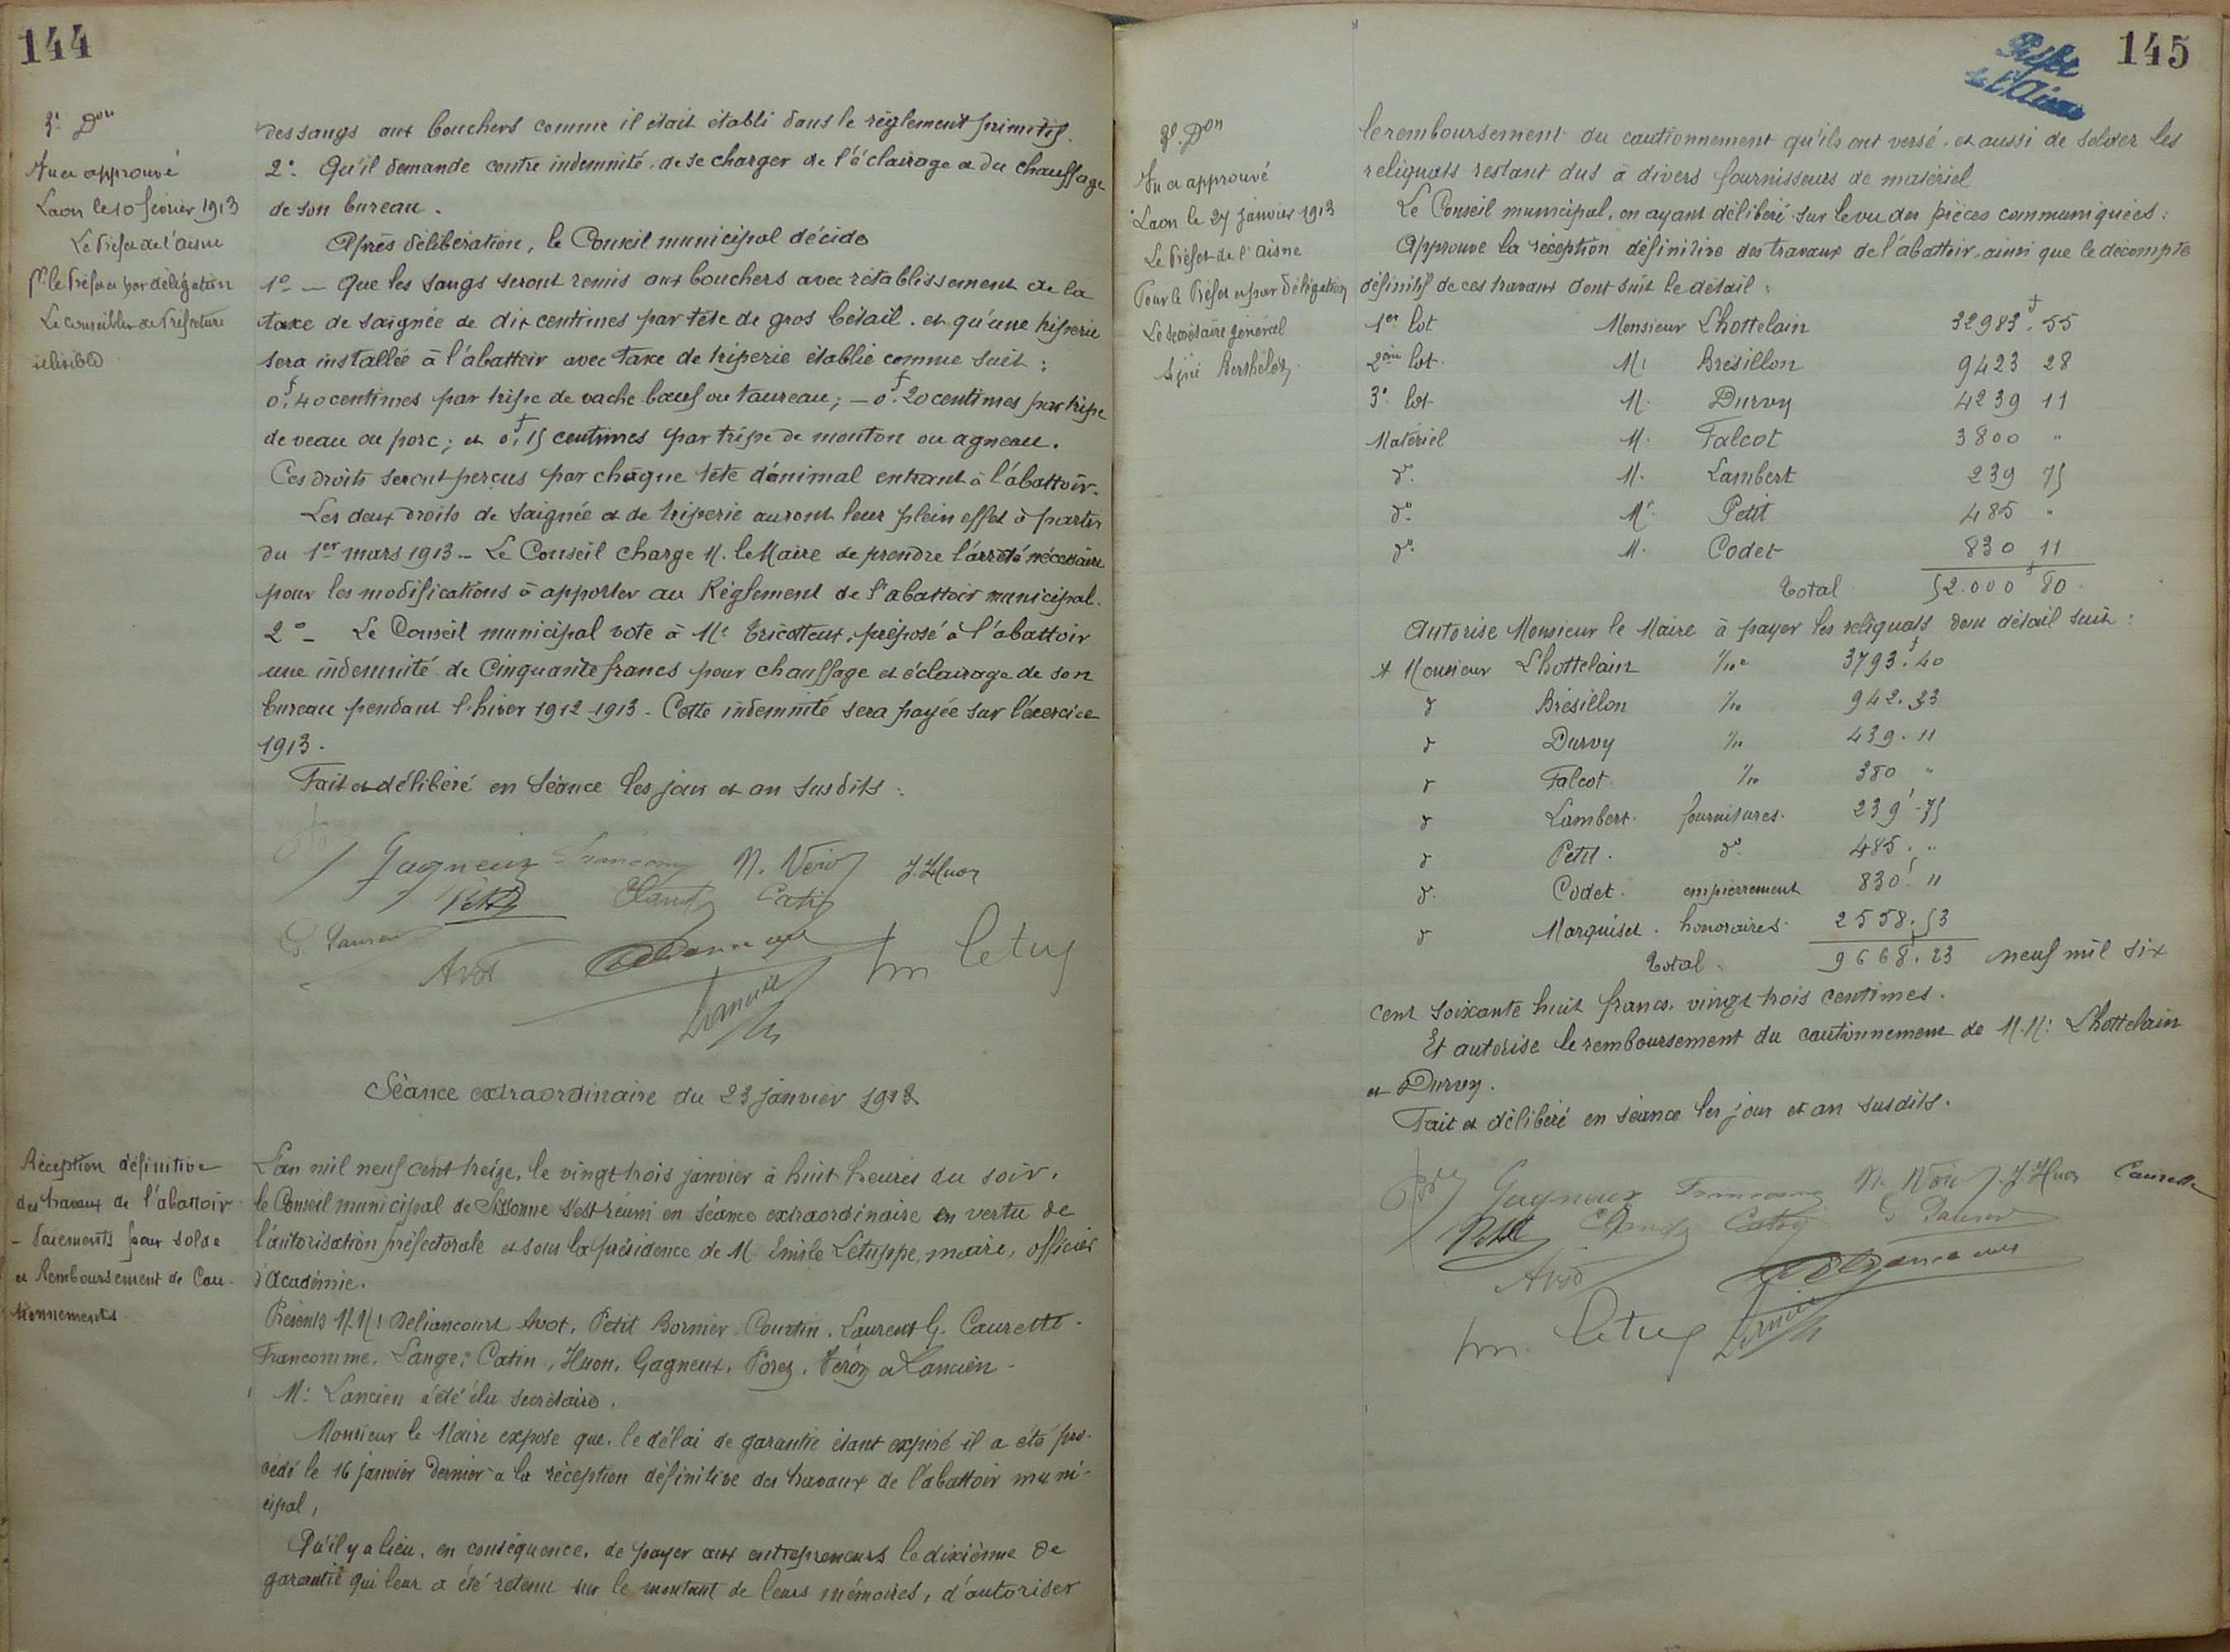 144
3e Don
Vu et approuvé
Laon le 10 février 1913
Le Préfet de l'Aisne
Pr le Préfet et par délégation
Le Conseiller de Préfecture
illisible
des sangs aux bouchers comme il était établi dans le règlement primitif.
2° Qu'il demande contre indemnité, de se charger de l'éclairage et du chauffage
de son bureau.
Après délibération, le Conseil municipal décide
1° — Que les sangs seront remis aux bouchers avec rétablissement de la
taxe de saignée de dix centimes par tête de gros bétail. et qu'une triperie
sera installée à l'abattoir avec taxe de triperie établie comme suit :
0f,40 centimes par tripe de vache bœuf ou taureau; — 0f.20 centimes par tripe
de veau ou porc; et 0f,15 centimes par tripe de mouton ou agneau.
Ces droits seront perçus par chaque tête d'animal entrant à l'abattoir.
Les deux droits de saignée et de triperie auront leur plein effet à partir
du 1er mars 1913 — Le Conseil charge M. le Maire de prendre l'arrêté nécessaire
pour les modifications à apporter au Règlement de l'abattoir municipal.
2° — Le Conseil municipal vote à Mr Tricotteux, préposé à l'abattoir
une indemnité de Cinquante francs pour chauffage et éclairage de son
bureau pendant l'hiver 1912-1913 - Cette indemnité sera payée sur l'exercice
1913.
Fait et délibéré en séance les jour et an susdits :
Gagneux Francomme N. Véron J. Huon
Petit Catin
G. Laurent
Avot Deliancourt Em Letup
Lancien
Séance extraordinaire du 23 janvier 1913
Réception définitive
des travaux de l'abattoir
- Paiements pour solde
et Remboursement de Cau-
tionnements
L'an mil neuf cent treize, le vingt trois janvier à huit heures du soir,
le Conseil municipal de Sissonne s'est réuni en séance extraordinaire en vertu de
l'autorisation préfectorale et sous la présidence de M. Emile Letuppe, maire, officier
d'Académie.
Présents M.M: Deliancourt Avot, Petit Bornier. Courtin. Laurent G. Caurette -
Francomme, Lange, Catin, Huon, Gagneux, Porez, Véron et Lancien -
Mr Lancien a été élu secrétaire.
Monsieur le Maire expose que, le délai de garantie étant expiré il a été pro-
cédé le 16 janvier dernier à la réception définitive des travaux de l'abattoir muni-
cipal,
Qu'il y a lieu, en conséquence, de payer aux entrepreneurs le dixième de
garantie qui leur a été retenu sur le montant de leurs mémoires, d'autoriser
Préfet
de l'Aisne
145
3e Don
Vu et approuvé
Laon le 27 janvier 1913
Le Préfet de l'Aisne
Pour le Préfet et par délégation
Le secrétaire général
Signé Berthelot
le remboursement du cautionnement qu'ils ont versé, et aussi de solder les
reliquats restant dus à divers fournisseurs de matériel
Le Conseil municipal, en ayant délibéré sur le vu des pièces communiquées :
Approuve la réception définitive des travaux de l'abattoir, ainsi que le décompte
définitif de ces travaux dont suit le détail :
1er lot Monsieur Lhottelain 32983f.55
2ème lot. Mr Brésillon 9423 28
3e lot M. Durvy 4239 11
Matériel M. Falcot 3800 "
do M. Lambert 239 75
do Mr Petit 485 "
do M. Codet 830 11
Total 52.000f 80
Autorise Monsieur le Maire à payer les reliquats dont détail suit :
A Monsieur Lhottelain 1/10e 3793f.40
d Brésillon 1/10 942.33
d Durvy 1/10 439.11
d Falcot 1/10 380 "
d Lambert. fournitures. 239f.75
d Petit. do 485. "
d. Codet. empierrement 830f. 11
d Marquiset. honoraires. 2558.53
Total. 9668f.23 neuf mil six
cent soixante huit francs, vingt trois centimes.
Et autorise le remboursement du cautionnement de M.M: Lhottelain
et Durvy.
Fait et délibéré en séance les jour et an susdits.
Gagneux Francomme N. Véron J. Huon Caurette
Petit Catin G Laurent
Avot Deliancourt
Em Letup Lancien